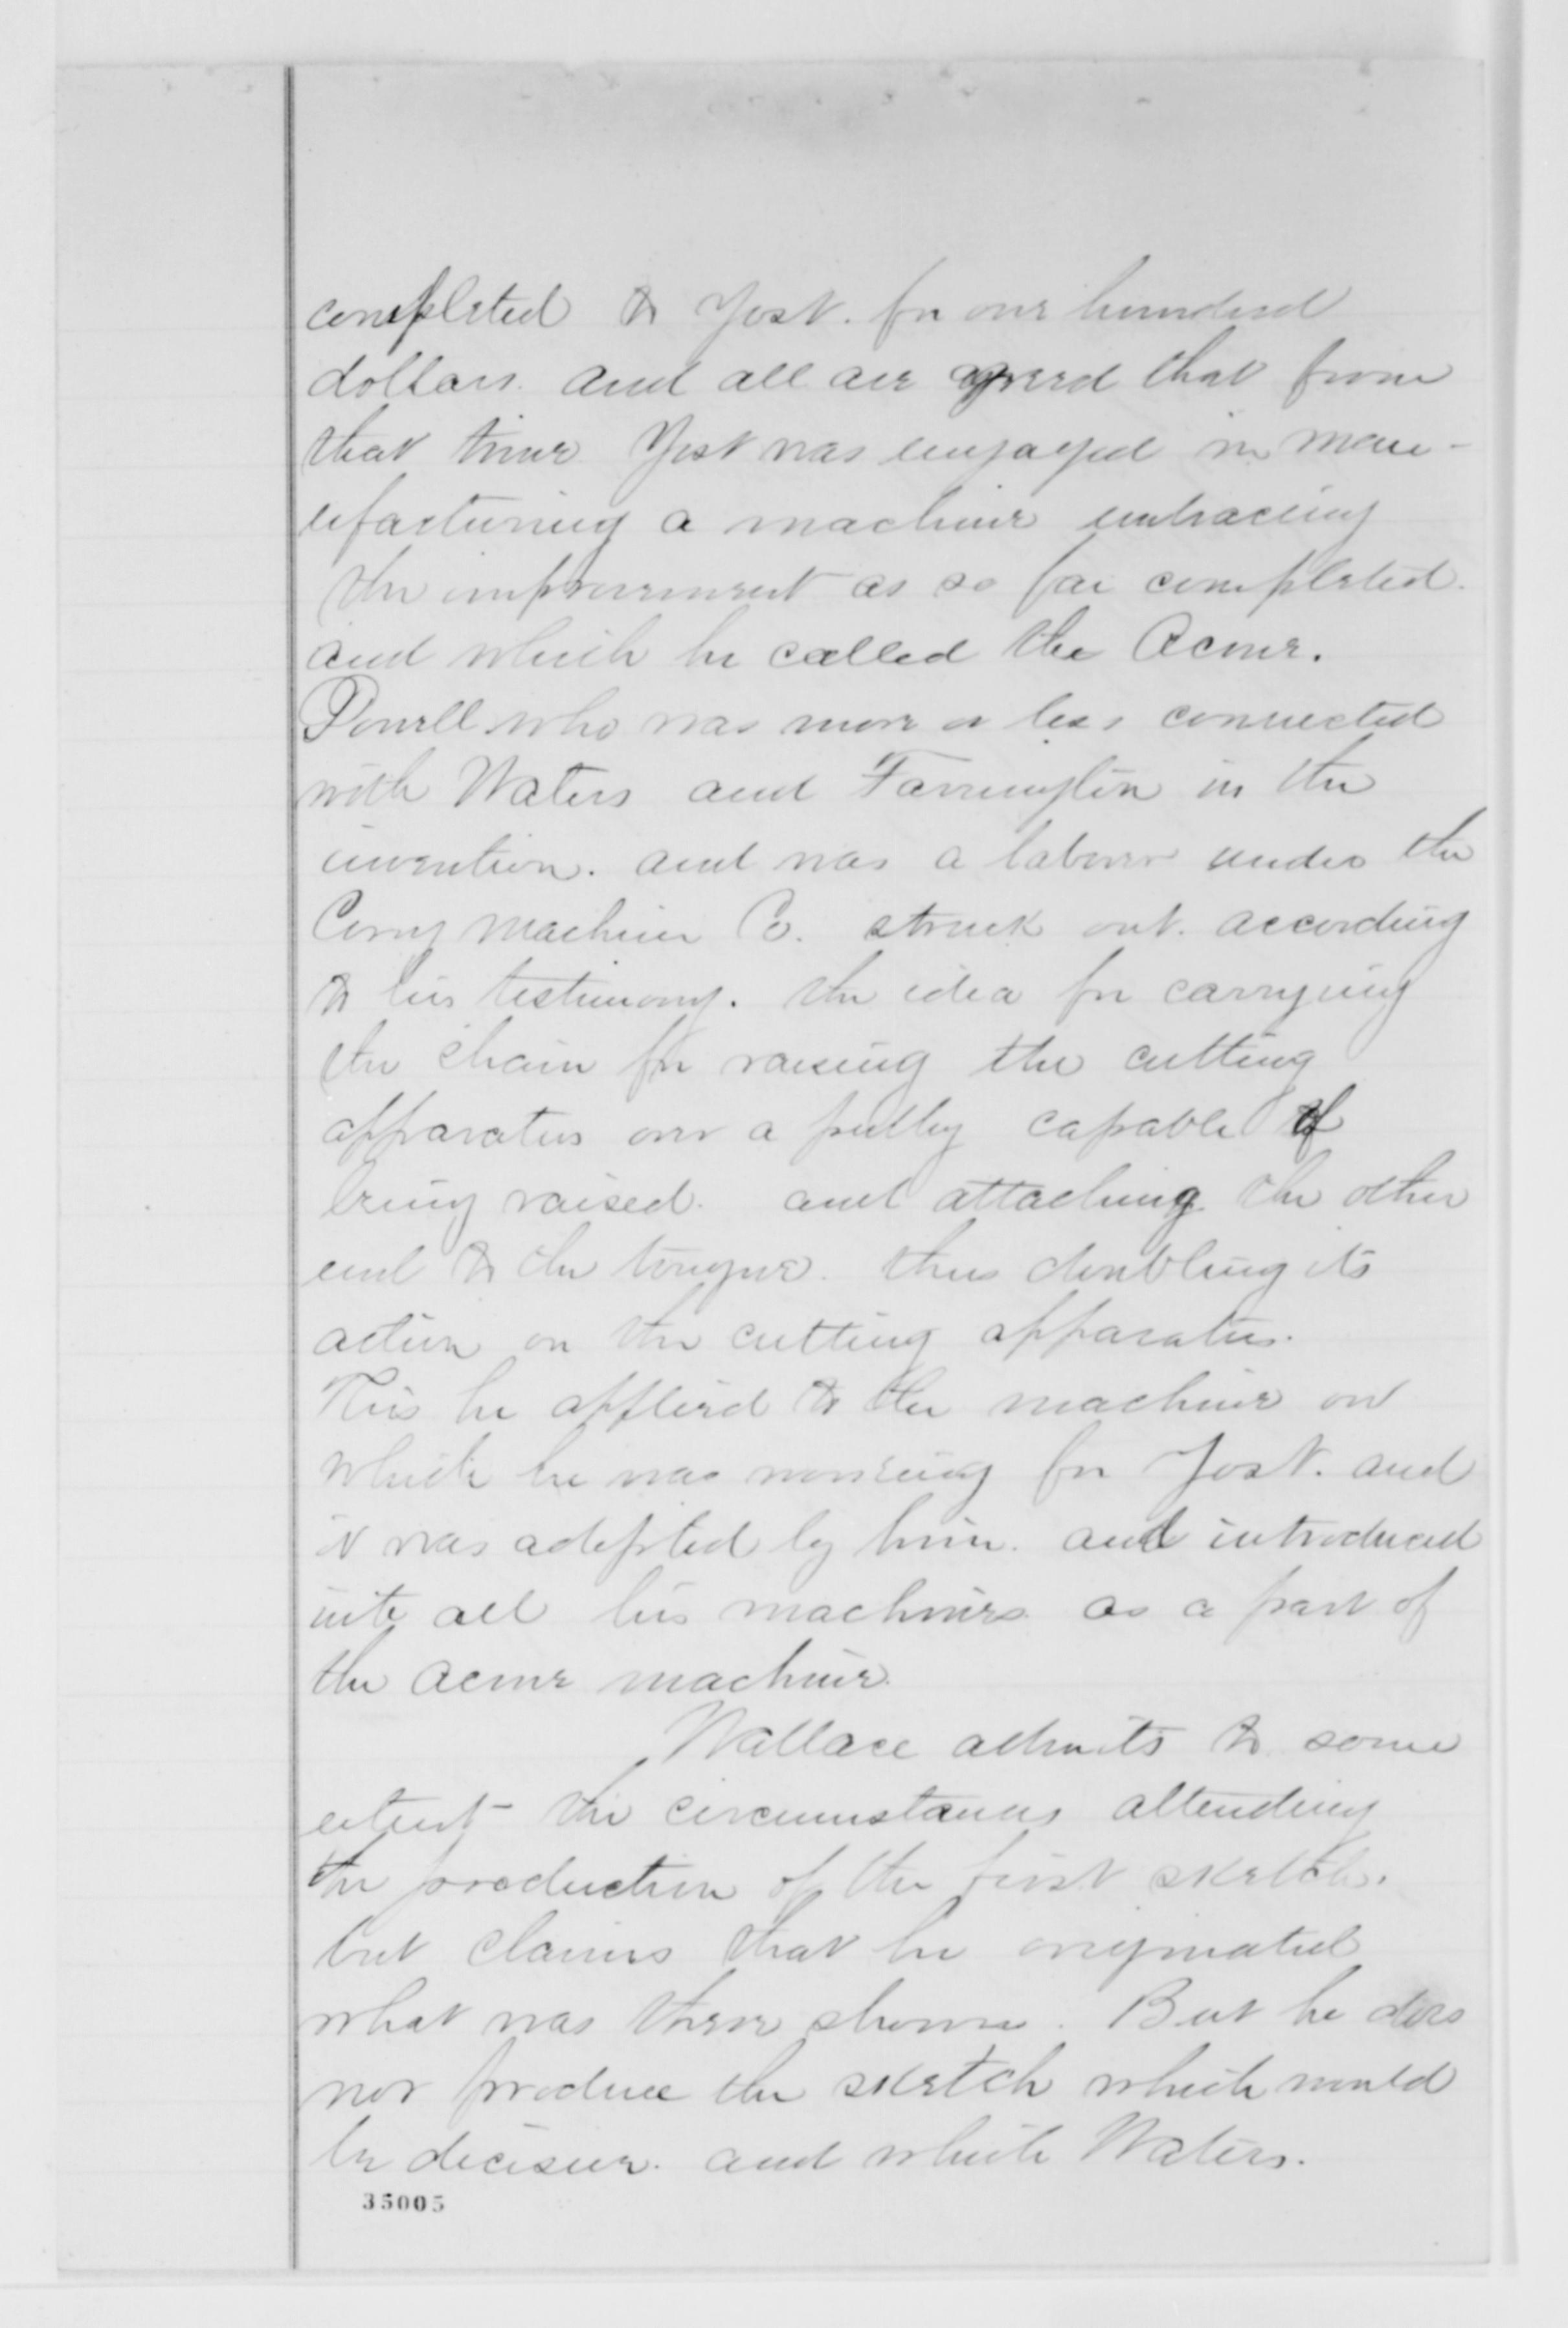 completed to Yost. for one hundred
dollars. and all are agreed that from
that time Yost was engaged in man-
ufacturing a machine embracing
the improvement as so far completed.
and which he called the Acme.
Powell who was more or less connected
with Waters and Farrington in the
invention. and was a laborer under the
Corry Machine Co. struck out. according
to his testimony. the idea for carrying
the chain for raising the cutting
apparatus over a pulley capable of
being raised. and attaching the other
end to the tongue. thus doubling its
action on the cutting apparatus.
This he applied to the machine on
which he was working for Yost. and
it was adopted by him. and introduced
into all his machines as a part of
the Acme machine.
Wallace admits to some
extent the circumstances attending
the production of the first sketch.
but claims that he originated
what was there shown. But he does
not produce the sketch which would
be decisive. and which Waters.
35005